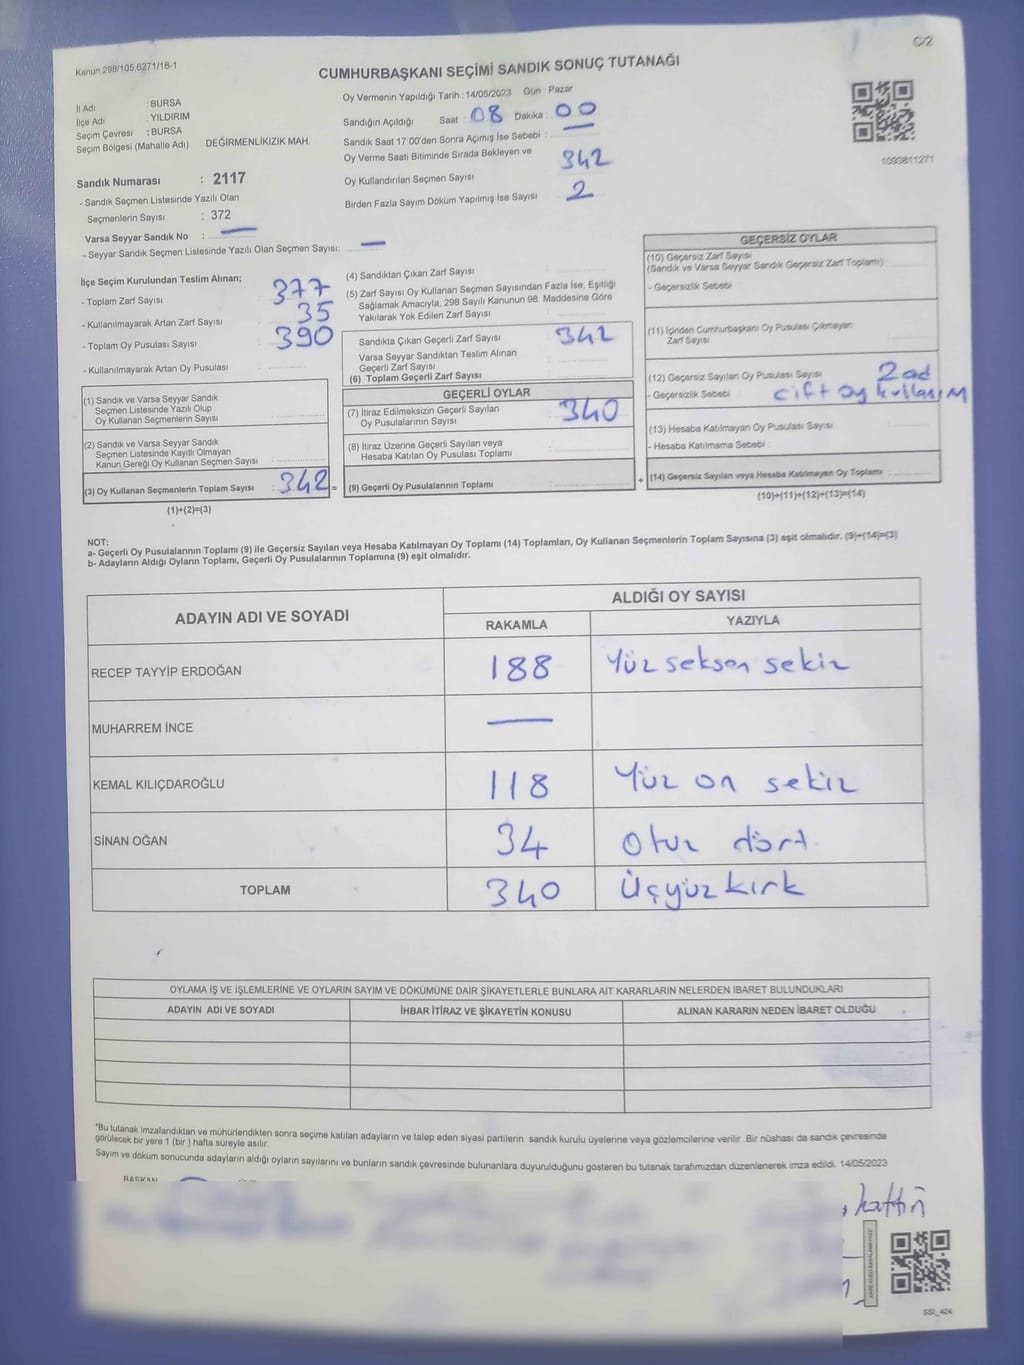 C/2
Kanun,298/105,6271/18-1
CUMHURBAŞKANI SEÇİMİ SANDIK SONUÇ TUTANAĞI
İl Adı : BURSA
İlçe Adı : YILDIRIM
Seçim Çevresi : BURSA
Seçim Bölgesi (Mahalle Adı) : DEĞİRMENLİKIZIK MAH.
Sandık Numarası : 2117
- Sandık Seçmen Listesinde Yazılı Olan
Seçmenlerin Sayısı : 372
Varsa Seyyar Sandık No : —
- Seyyar Sandık Seçmen Listesinde Yazılı Olan Seçmen Sayısı: —
Oy Vermenin Yapıldığı Tarih : 14/05/2023 Gün Pazar
Sandığın Açıldığı Saat : 08 Dakika : 00
Sandık Saat 17:00'den Sonra Açımış İse Sebebi : —
Oy Verme Saati Bitiminde Sırada Bekleyen ve
Oy Kullandırılan Seçmen Sayısı 342
Birden Fazla Sayım Döküm Yapılmış İse Sayısı 2
1093811271
İlçe Seçim Kurulundan Teslim Alınan;
- Toplam Zarf Sayısı 377
- Kullanılmayarak Artan Zarf Sayısı 35
- Toplam Oy Pusulası Sayısı 390
- Kullanılmayarak Artan Oy Pusulası
(1) Sandık ve Varsa Seyyar Sandık
Seçmen Listesinde Yazılı Olup
Oy Kullanan Seçmenlerin Sayısı
(2) Sandık ve Varsa Seyyar Sandık
Seçmen Listesinde Kayıtlı Olmayan
Kanun Gereği Oy Kullanan Seçmen Sayısı
(3) Oy Kullanan Seçmenlerin Toplam Sayısı : 342 =
(1)+(2)=(3)
(4) Sandıktan Çıkan Zarf Sayısı
(5) Zarf Sayısı Oy Kullanan Seçmen Sayısından Fazla İse, Eşitliği
Sağlamak Amacıyla, 298 Sayılı Kanunun 98. Maddesine Göre
Yakılarak Yok Edilen Zarf Sayısı
Sandıkta Çıkan Geçerli Zarf Sayısı 342
Varsa Seyyar Sandıktan Teslim Alınan
Geçerli Zarf Sayısı
(6) Toplam Geçerli Zarf Sayısı
GEÇERLİ OYLAR
(7) İtiraz Edilmeksizin Geçerli Sayılan
Oy Pusulalarının Sayısı 340
(8) İtiraz Üzerine Geçerli Sayılan veya
Hesaba Katılan Oy Pusulası Toplamı
(9) Geçerli Oy Pusulalarının Toplamı +
GEÇERSİZ OYLAR
(10) Geçersiz Zarf Sayısı
(Sandık ve Varsa Seyyar Sandık Geçersiz Zarf Toplamı)
- Geçersizlik Sebebi
(11) İçinden Cumhurbaşkanı Oy Pusulası Çıkmayan
Zarf Sayısı
(12) Geçersiz Sayılan Oy Pusulası Sayısı 2 ad
- Geçersizlik Sebebi çift oy kullanım
(13) Hesaba Katılmayan Oy Pusulası Sayısı
- Hesaba Katılmama Sebebi :
(14) Geçersiz Sayılan veya Hesaba Katılmayan Oy Toplamı
(10)+(11)+(12)+(13)=(14)
NOT:
a- Geçerli Oy Pusulalarının Toplamı (9) ile Geçersiz Sayılan veya Hesaba Katılmayan Oy Toplamı (14) Toplamları, Oy Kullanan Seçmenlerin Toplam Sayısına (3) eşit olmalıdır. (9)+(14)=(3)
b- Adayların Aldığı Oyların Toplamı, Geçerli Oy Pusulalarının Toplamına (9) eşit olmalıdır.
ADAYIN ADI VE SOYADI ALDIĞI OY SAYISI
RAKAMLA YAZIYLA
RECEP TAYYİP ERDOĞAN 188 Yüz seksen sekiz
MUHARREM İNCE —
KEMAL KILIÇDAROĞLU 118 Yüz on sekiz
SİNAN OĞAN 34 Otuz dört
TOPLAM 340 Üçyüz kırk
OYLAMA İŞ VE İŞLEMLERİNE VE OYLARIN SAYIM VE DÖKÜMÜNE DAİR ŞİKAYETLERLE BUNLARA AİT KARARLARIN NELERDEN İBARET BULUNDUKLARI
ADAYIN ADI VE SOYADI İHBAR İTİRAZ VE ŞİKAYETİN KONUSU ALINAN KARARIN NEDEN İBARET OLDUĞU
*Bu tutanak imzalandıktan ve mühürlendikten sonra seçime katılan adayların ve talep eden siyasi partilerin sandık kurulu üyelerine veya gözlemcilerine verilir .Bir nüshası da sandık çevresinde
görülecek bir yere 1 (bir ) hafta süreyle asılır.
Sayım ve döküm sonucunda adayların aldığı oyların sayılarını ve bunların sandık çevresinde bulunanlara duyurulduğunu gösteren bu tutanak tarafımızdan düzenlenerek imza edildi. 14/05/2023
BAŞKAN
hattin
SSI_404